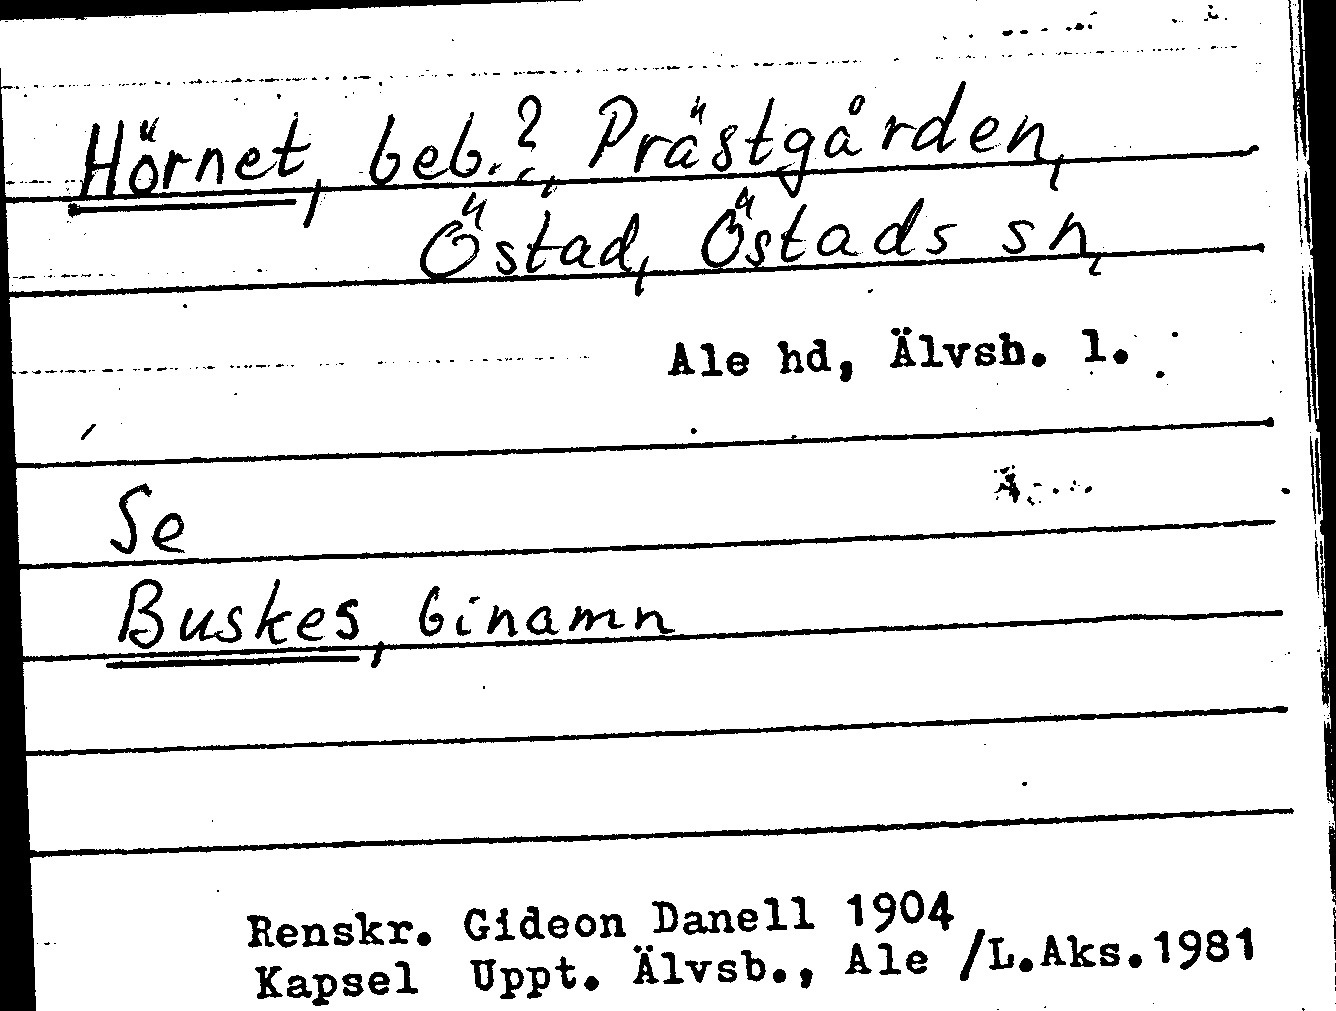 Hörnet, beb.?, Prästgården,
Östad, Östads sn,
Ale hd, Älvsb. l.
Se
Buskes, binamn
Renskr. Gideon Danell 1904
Kapsel Uppt. Älvsb., Ale /L.Aks.1981